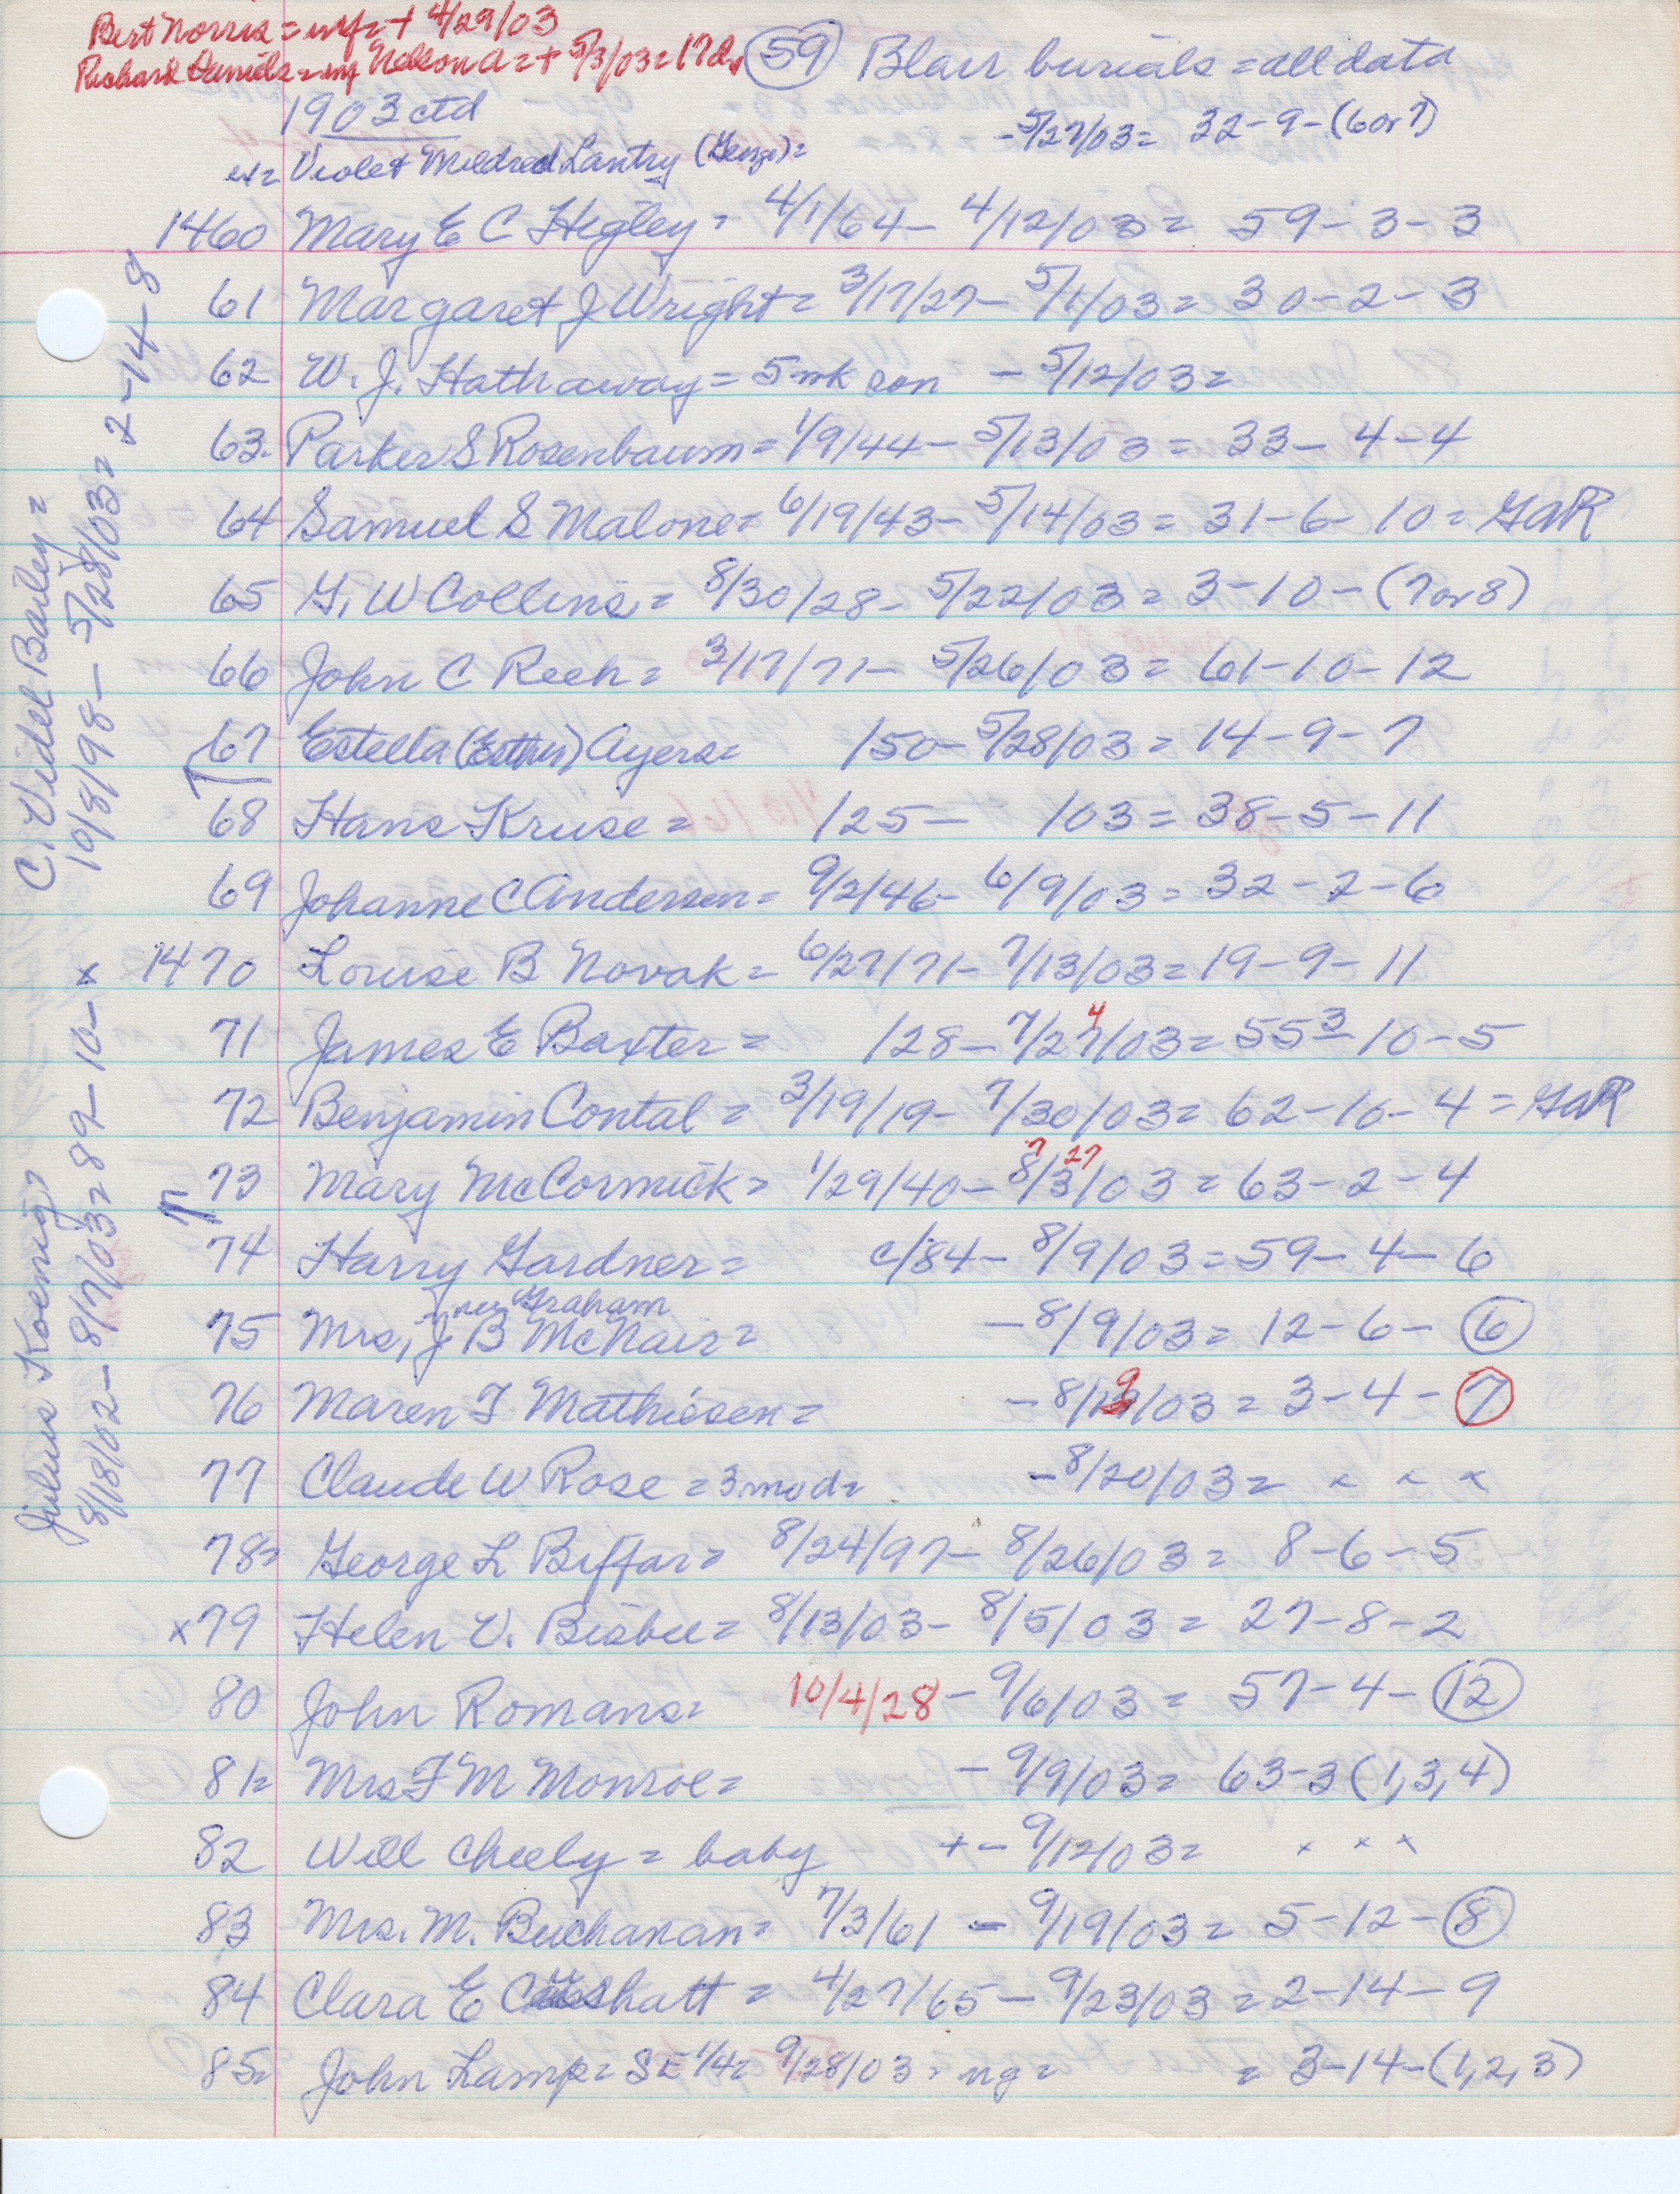 Bert Norris = inf = + 4/29/03
Richard Daniels = inf Nelson a = + 5/3/03 = 17d
59 Blair burials = all data
1903 ctd
ex = Violet Mildred Lantry (George) = - 5/27/03 = 32-9-(6 or 7)
1460 Mary E C Hegley = 4/1/64 - 4/12/03 = 59-3-3
61 Margaret J Wright = 3/17/27 - 5/1/03 = 30-2-3
62 W. J. Hathaway = 5 wk son - 5/12/03 =
63. Parker S Rosenbaum = 1/9/44 - 5/13/03 = 33-4-4
64 Samuel S Malone = 6/19/43 - 5/14/03 = 31-6-10 = GAR
65 G. W Collins = 8/30/28 - 5/22/03 = 3-10-(7 or 8)
66 John C Reeh = 3/17/71 - 5/26/03 = 61-10-12
67 Estella (Esther) Ayers = /50 - 5/28/03 = 14-9-7
68 Hans Kruse = /25 - /03 = 38-5-11
69 Johanne C Andersen = 9/2/46 - 6/9/03 = 32-2-6
1470 Louise B Novak = 6/27/71 - 7/13/03 = 19-9-11
4
71 James E Baxter = /28 - 7/27/03 = 55 3-10-5
72 Benjamin Contal = 3/19/19 - 7/30/03 = 62-10-4 = GAR
7 27
73 Mary McCormick = 1/29/40 - 8/3/03 = 63-2-4
74 Harry Gardner = c/84 - 8/9/03 = 59-4-6
nee Graham
75 Mrs, J B McNair = - 8/9/03 = 12-6-6
76 Maren F Mathiesen = - 8/19/03 = 3-4-7
77 Claude W Rose = 3 mo d = - 8/20/03 = x x x
78 = George L Biffar = 8/24/97 - 8/26/03 = 8-6-5
x79 Helen V. Bisbee = 8/13/03 - 8/5/03 = 27-8-2
80 John Romans = 10/4/28 - 9/6/03 = 57-4-12
81 = Mrs F M Monroe = - 9/9/03 = 63-3 (1,3,4)
82 Will Cheely = baby + - 9/12/03 = x x x
83 Mrs. M. Buchanan = 7/3/61 - 9/19/03 = 5-12-8
84 Clara E shatt = 4/27/65 - 9/23/03 = 2-14-9
85 = John Lamp = SE 1/4 = 9/28/03 = ng = = 3-14-(1,2,3)
C, Videl Bailey =
10/8/98 - 5/28/03 = 2-14-8
Julius Koenig =
8/18/02 - 8/7/03 = 89-10-x